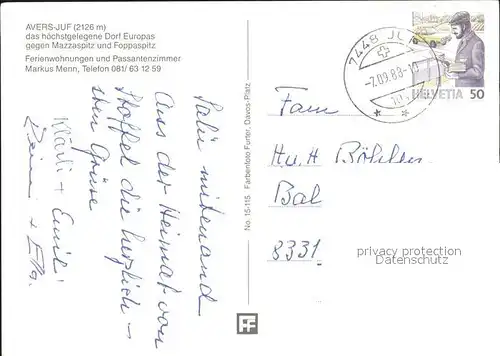 AVERS-JUF (2126 m)
das höchstgelegene Dorf Europas
gegen Mazzaspitz und Foppaspitz
Ferienwohnungen und Passantenzimmer
Markus Menn, Telefon 081/ 63 12 59
Salü mitenand
Aus der Heimat von
Stoffel die herzlich-
sten Grüse
+ Emil
+
No. 15-115 Farbenfoto Furter, Davos-Platz
FF
7448 JUF
-7.09.88-
HELVETIA 50
Fam
H u. H
Bal
8331
privacy protection
www.